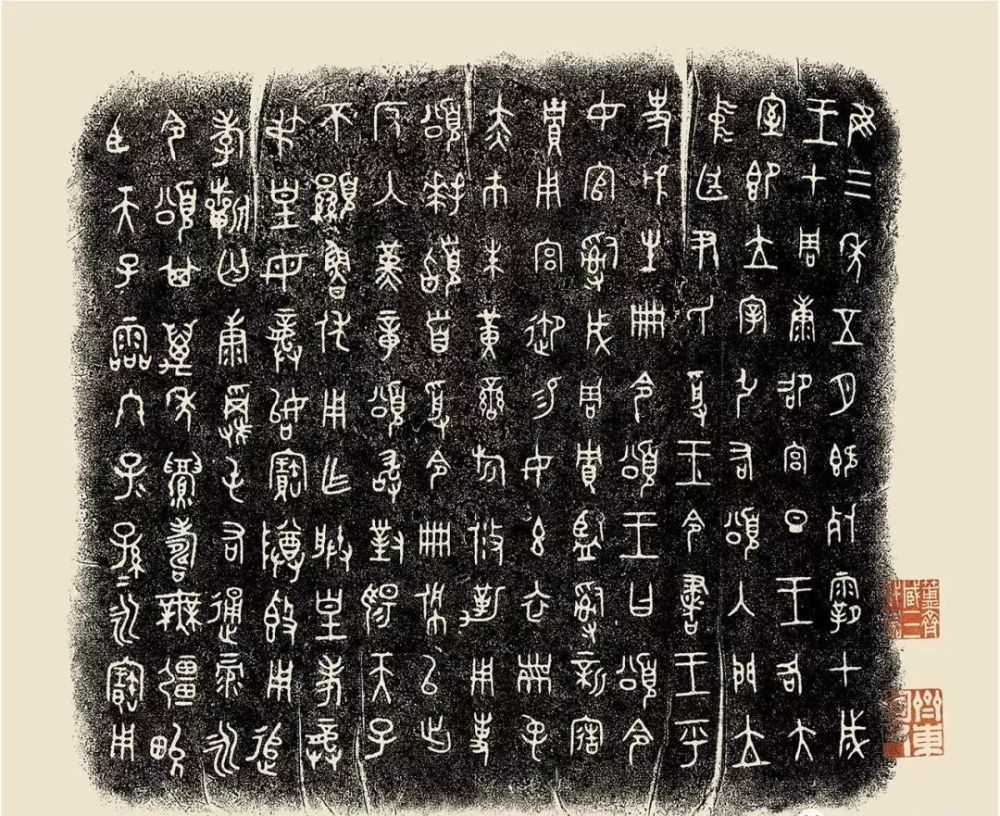 隹三年五月既死霸甲戌
王才周康卲宮旦王各大
室即立宰引右頌入門立
中廷尹氏受王令書王乎
史虢生冊令頌王曰頌令
女官𤔲成周貯監𤔲新造
貯用宮御易女玄衣黹屯
赤巿朱黃䜌旂攸勒用事
頌拜𩒨首受令冊佩以出
反入堇章頌敢對揚天子
不顯魯休用乍朕皇考龏
弔皇母龏姒寶尊𣪘用追
孝𢭏匄康𩛥屯右通彔永
令頌其萬年眉壽無疆畯
臣天子霝冬子子孫孫永寶用